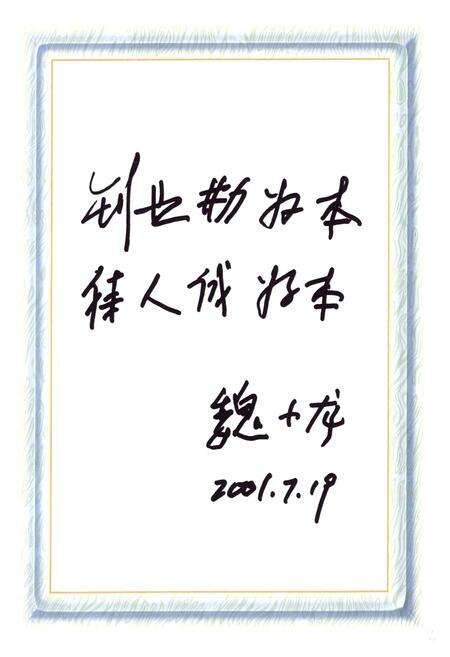 创业勤为本
待人诚为本
魏小龙
2001.7.19